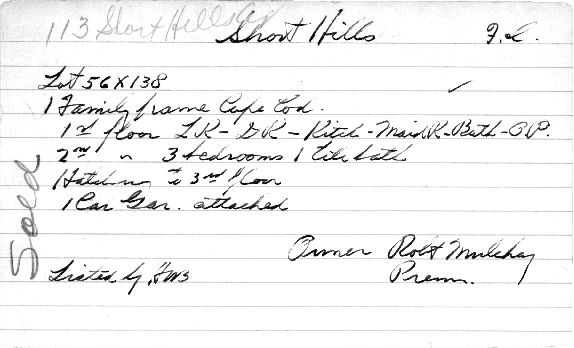 113 Short Hills Av
Short Hills J.L.
Lot 56 X 138
1 Family frame Cape Cod.
1st floor LR - DR - Kitch - Maid R - Bath - O.P.
2nd " 3 bedrooms 1 tile bath
Hatchway to 3rd floor
1 Car Gar. attached
Sold
Owner Robt Mulchay
Listed by HWB Prem.